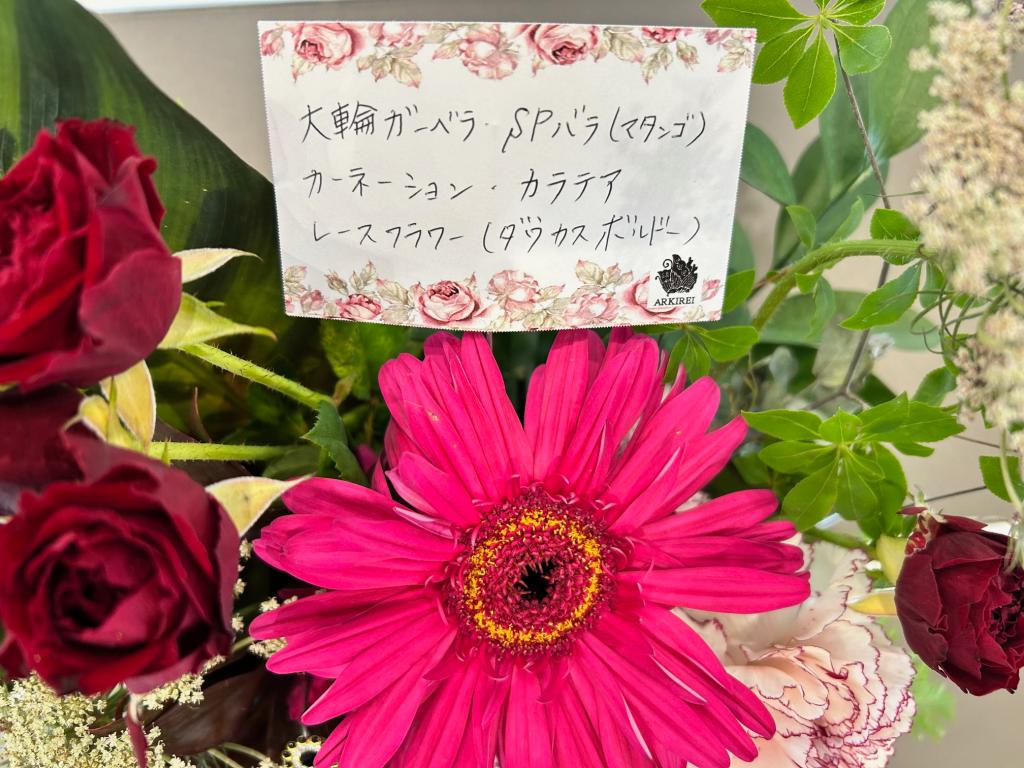 大輪ガーベラ・SPバラ(マタンゴ)
カーネーション・カラテア
レースフラワー(ダウカスボルドー)
ARKIREI